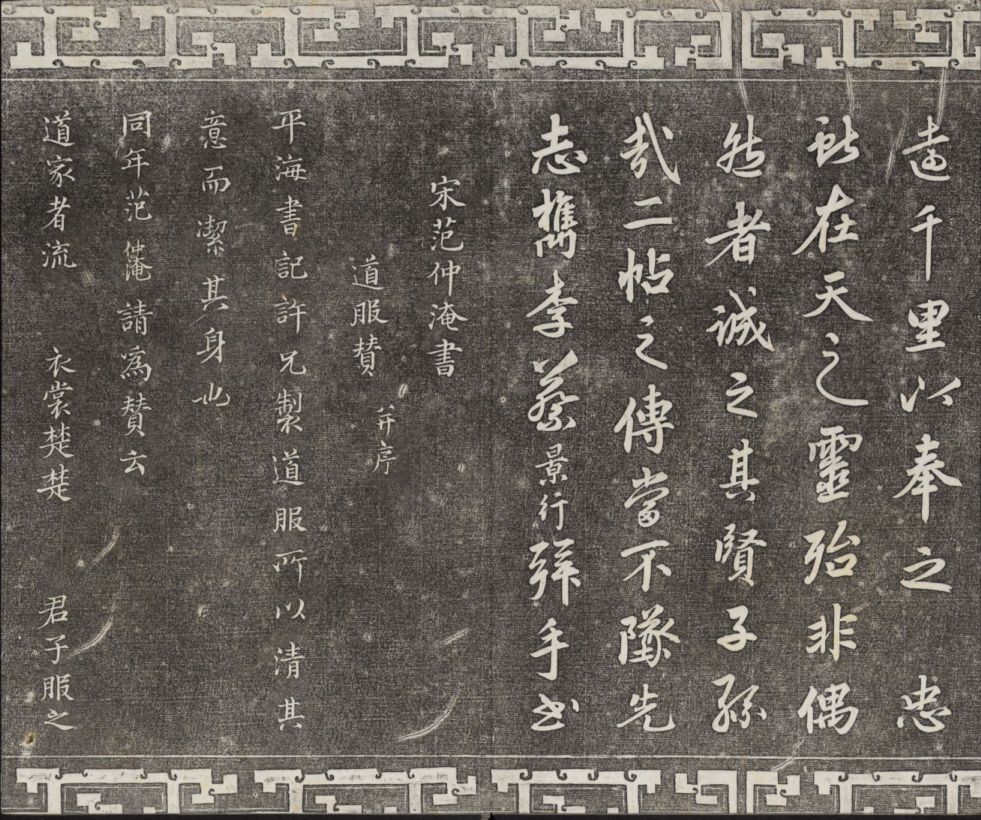 遠千里以奉之 忠
獻在天之靈殆非偶
然者誠之其賢子孫
哉二帖之傳當不墜先
志檇李蔡景行拜手書
宋范仲淹書
道服贊 并序
平海書記許兄製道服所以清其
意而潔其身也
同年范仲淹請為贊云
道家者流 衣裳楚楚 君子服之